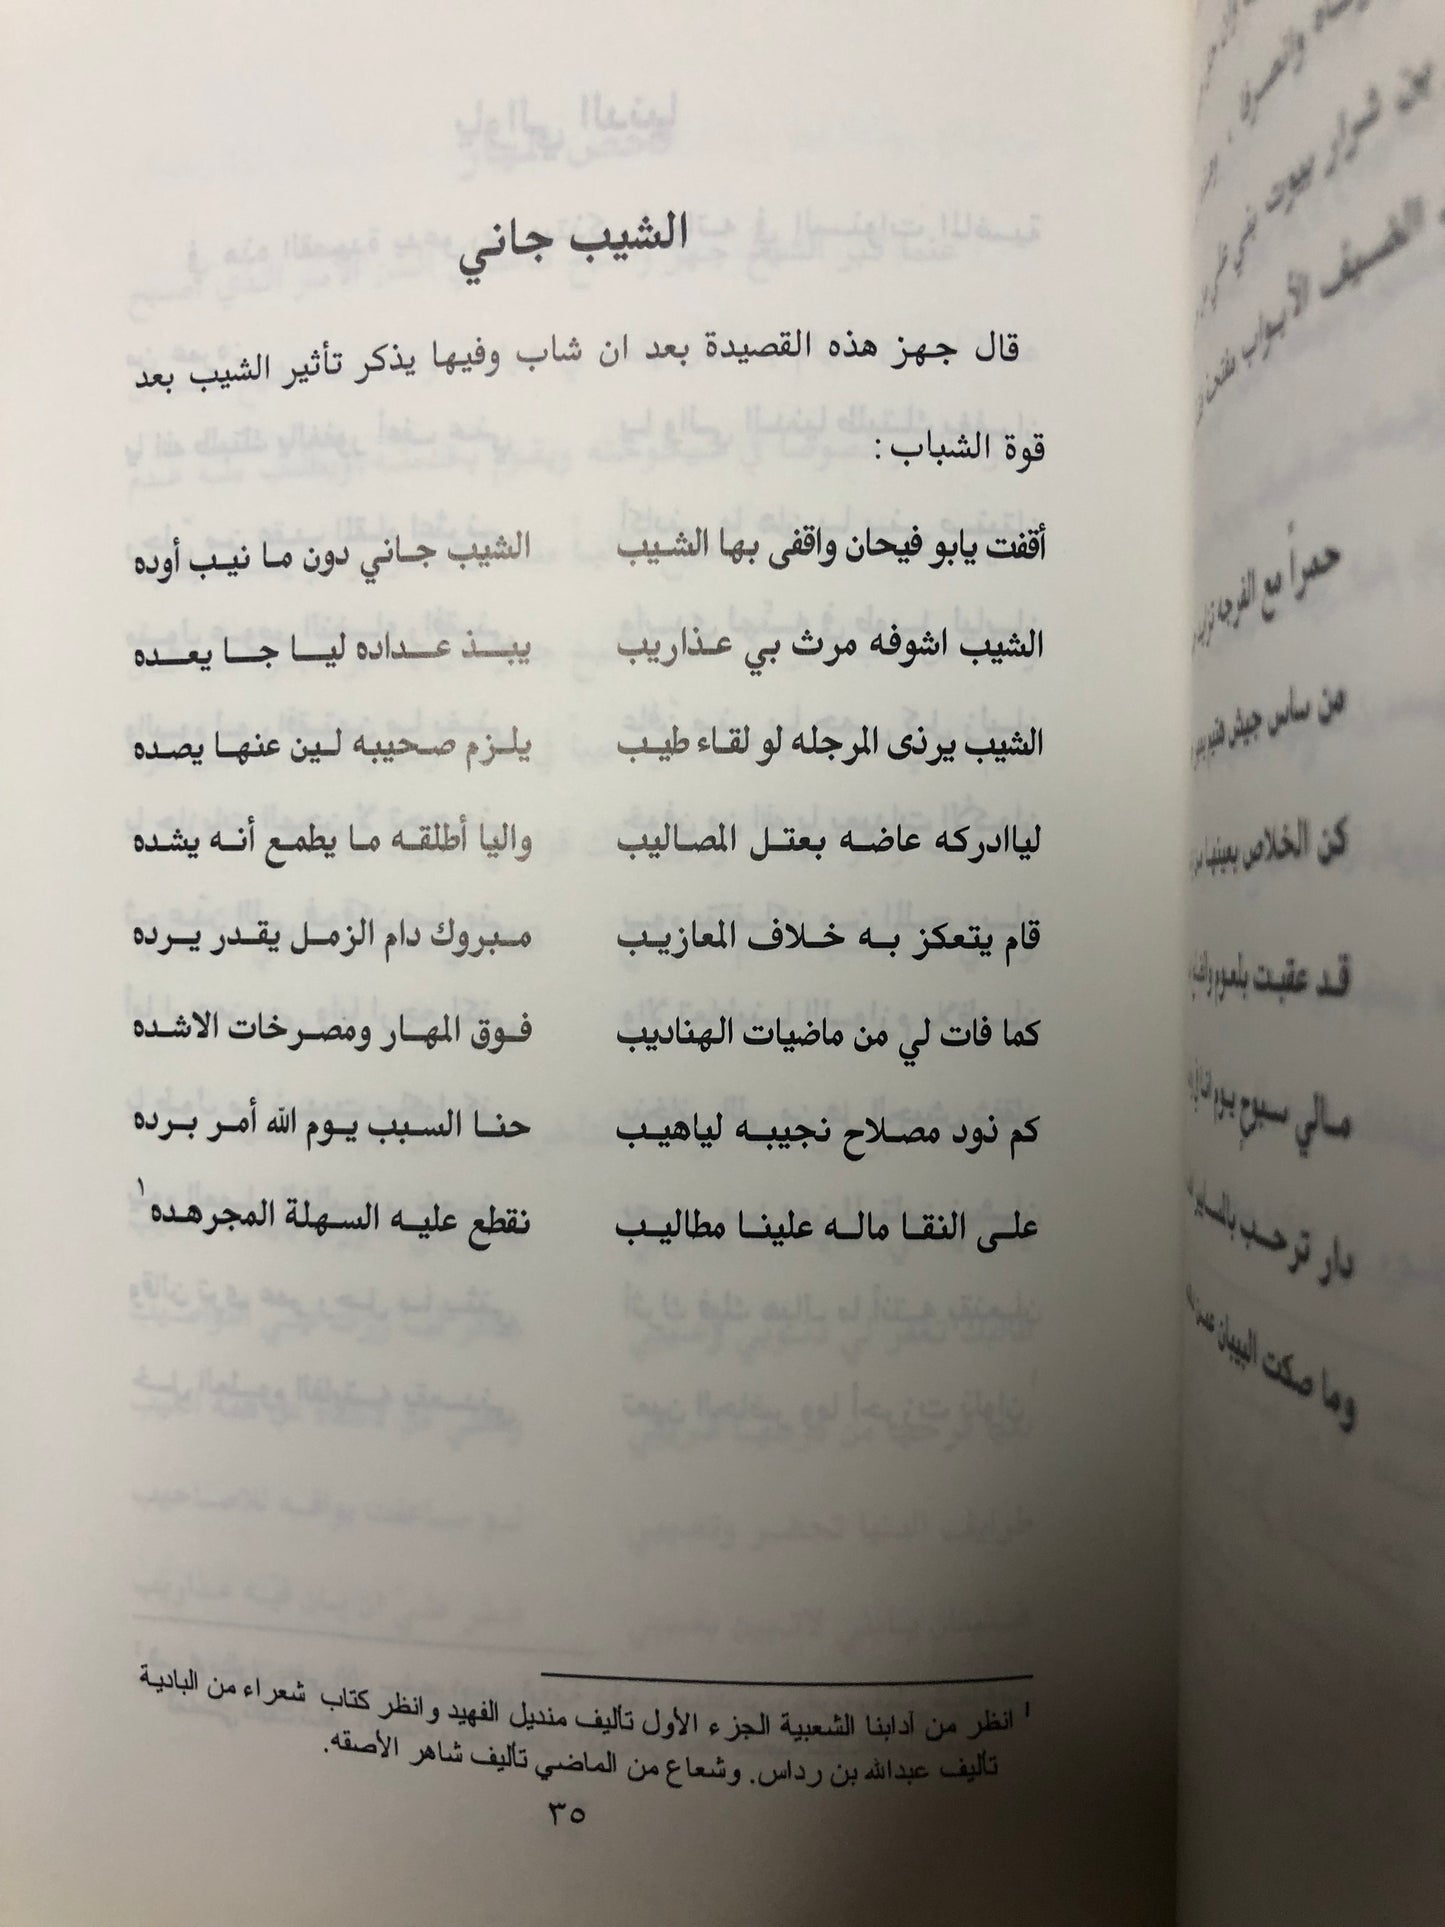 الشيب جاني
قال جهز هذه القصيدة بعد ان شاب وفيها يذكر تأثير الشيب بعد
قوة الشباب :
أقفت يابو فيحان واقفى بها الشيب الشيب جاني دون ما نيب أوده
الشيب اشوفه مرث بي عذاريب يبذ عداده ليا جا يعده
الشيب يرذى المرجله لو لقاء طيب يلزم صحيبه لين عنها يصده
ليا‌ادركه عاضه بعتل المصاليب واليا أطلقه ما يطمع أنه يشده
قام يتعكز به خلاف المعازيب مبروك دام الزمل يقدر يرده
كما فات لي من ماضيات الهناديب فوق المهار ومصرخات الاشده
كم ذود مصلاح نجيبه لياهيب حنا السبب يوم الله أمر برده
على النقا ماله علينا مطاليب نقطع عليه السهلة المجرهده١
١ انظر من آدابنا الشعبية الجزء الأول تأليف منديل الفهيد وانظر كتاب شعراء من البادية
تأليف عبدالله بن رداس. وشعاع من الماضي تأليف شاهر الأصقه.
٣٥
حمراً مع الفرجه
من ساس جيش
كن الخلاص بعينها
قد عقبت
مالي سبوح يوم
دار ترحب
وما صكت البيبان